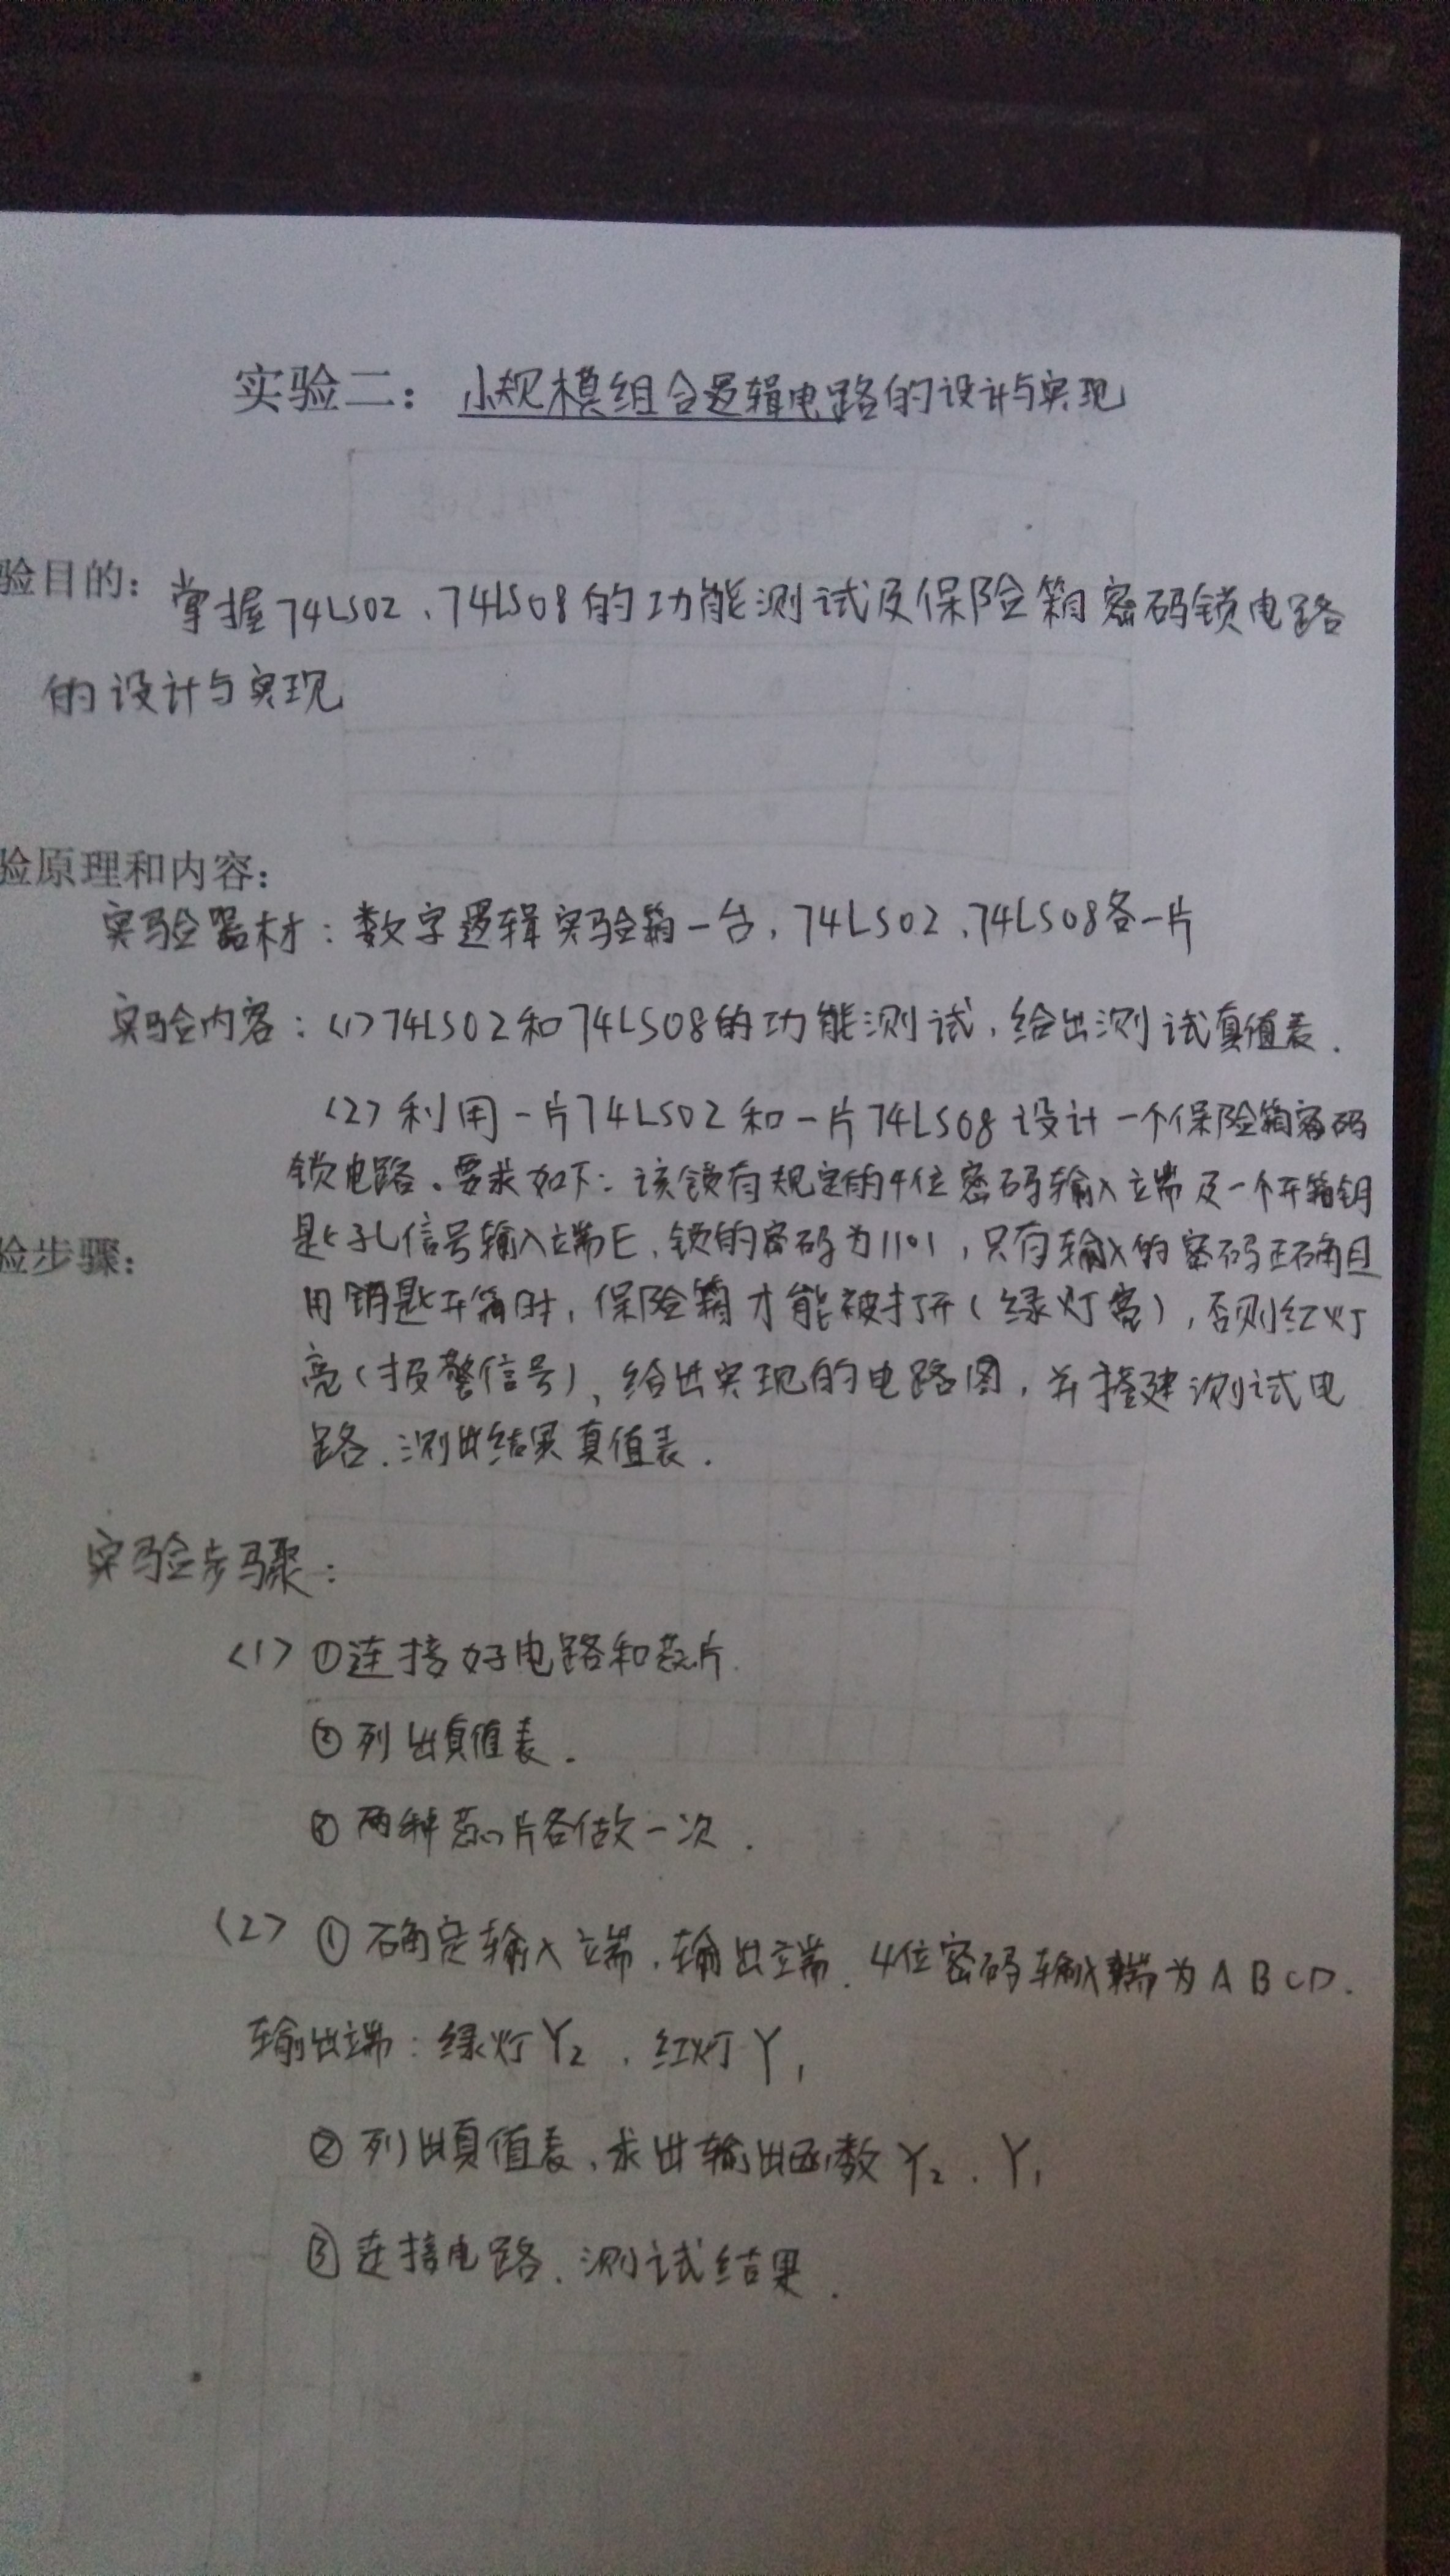 实验二：小规模组合逻辑电路的设计与实现
验目的：掌握74LS02、74LS08的功能测试及保险箱密码锁电路
的设计与实现
验原理和内容：
实验器材：数字逻辑实验箱一台，74LS02、74LS08各一片
实验内容：(1)74LS02和74LS08的功能测试，给出测试真值表.
(2)利用一片74LS02和一片74LS08设计一个保险箱密码
锁电路。要求如下：该锁有规定的4位密码输入端及一个开箱钥
匙孔信号输入端E，锁的密码为1101，只有输入的密码正确且
验步骤：
用钥匙开箱时，保险箱才能被打开(绿灯亮)，否则红灯
亮(报警信号)，给出实现的电路图，并搭建测试电
路.测出结果真值表.
实验步骤：
(1) ①连接好电路和芯片.
②列出真值表.
③两种芯片各做一次.
(2) ①确定输入端，输出端.4位密码输入端为ABCD.
输出端：绿灯Y₂，红灯Y₁
②列出真值表，求出输出函数Y₂、Y₁
③连接电路、测试结果.
四、实验数据和结果：